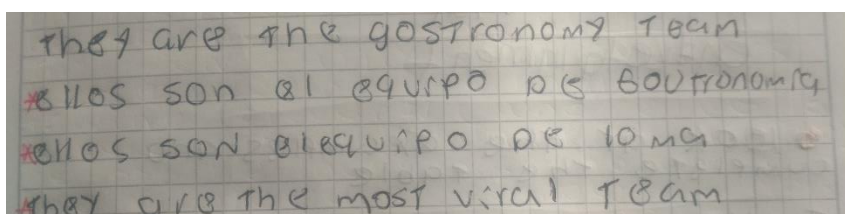 they are the gostronomy Team
*ellos son el equipo de goutronomia
*ellos son el equipo de lo ma
*they are the most viral Team